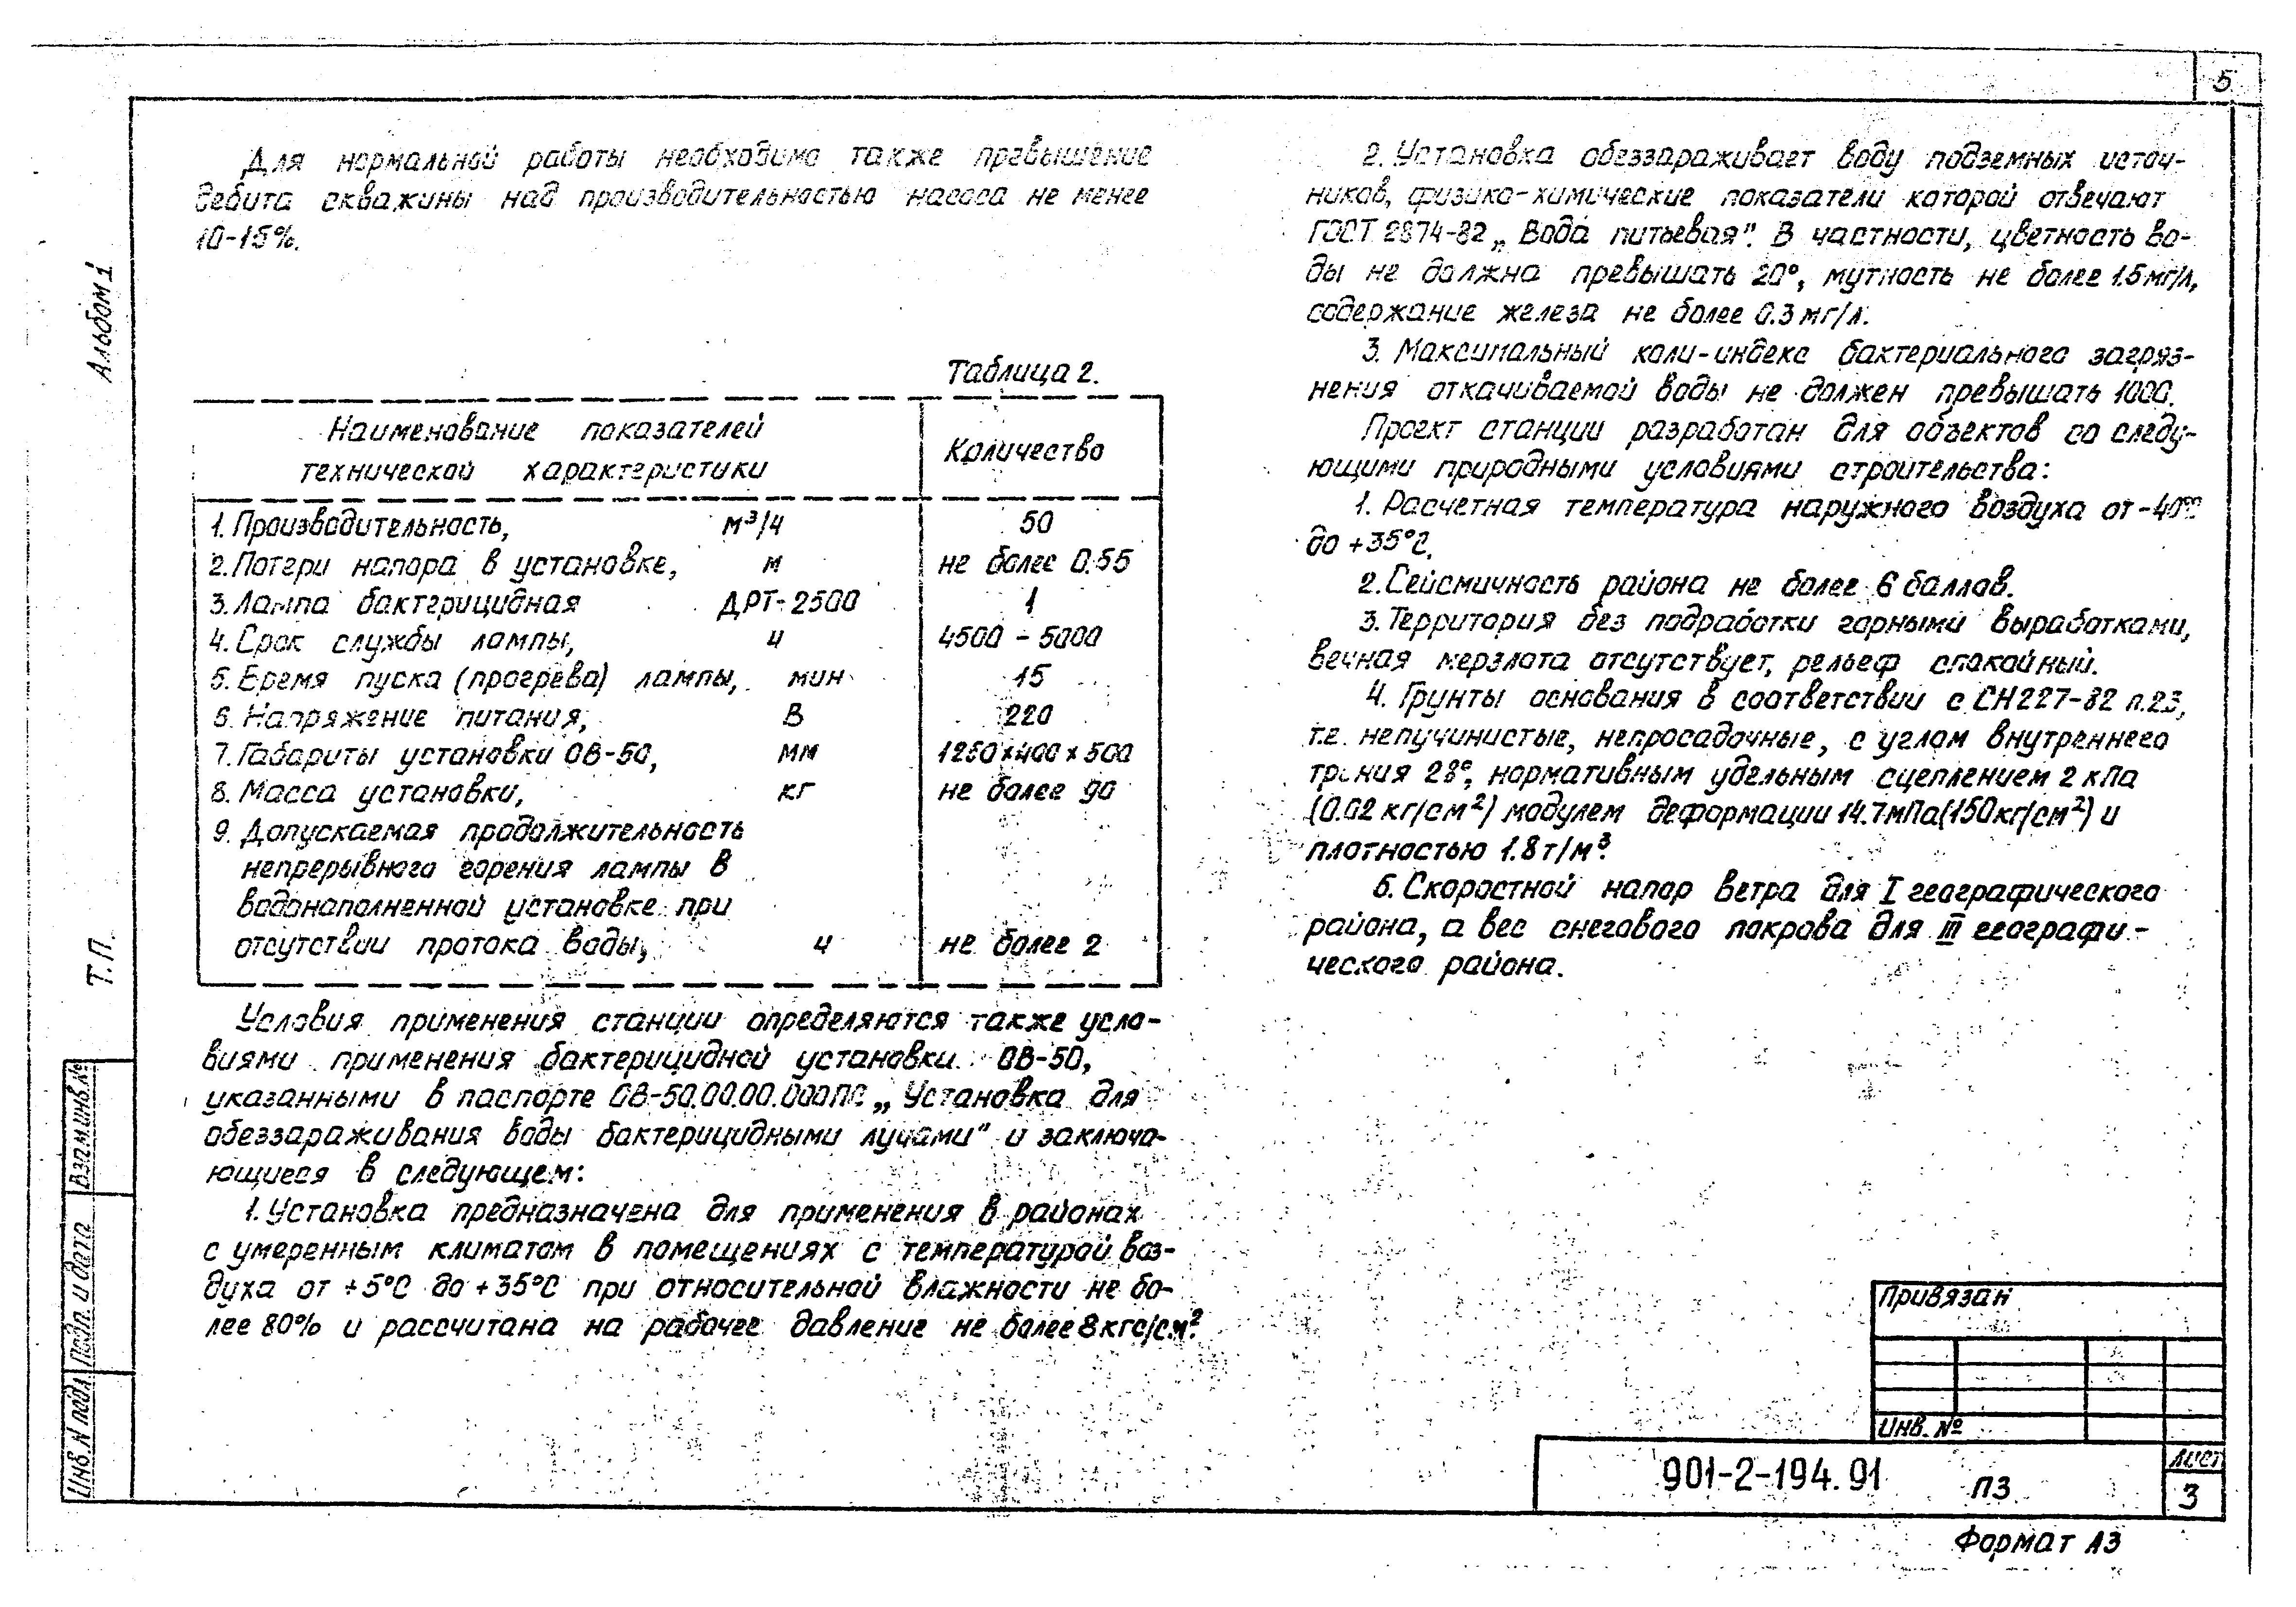 5
Для нормальной работы необходимо также превышение
дебита скважины над производительностью насоса не менее
10-15%.
Таблица 2.
Наименование показателей
технической характеристики
Количество
1. Производительность, м³/ч 50
2. Потери напора в установке, м не более 0.55
3. Лампа бактерицидная ДРТ-2500 1
4. Срок службы лампы, ч 4500 - 5000
5. Время пуска (прогрева) лампы, мин 15
6. Напряжение питания, В 220
7. Габариты установки ОВ-50, мм 1280×400×500
8. Масса установки, кг не более 90
9. Допускаемая продолжительность
непрерывного горения лампы в
водонаполненной установке при
отсутствии протока воды, ч не более 2
Условия применения станции определяются также усло-
виями применения бактерицидной установки ОВ-50,
указанными в паспорте ОВ-50.00.00.000ПС „Установка для
обеззараживания воды бактерицидными лучами" и заключа-
ющиеся в следующем:
1. Установка предназначена для применения в районах
с умеренным климатом в помещениях с температурой воз-
духа от +5°С до +35°С при относительной влажности не бо-
лее 80% и рассчитана на рабочее давление не более 8 кгс/см².
2. Установка обеззараживает воду подземных источ-
ников, физико-химические показатели которой отвечают
ГОСТ 2874-82 „Вода питьевая". В частности, цветность во-
ды не должна превышать 20°, мутность не более 1.5 мг/л,
содержание железа не более 0.3 мг/л.
3. Максимальный коли-индекс бактериального загряз-
нения откачиваемой воды не должен превышать 1000.
Проект станции разработан для объектов со следу-
ющими природными условиями строительства:
1. Расчетная температура наружного воздуха от -40°С
до +35°С.
2. Сейсмичность района не более 6 баллов.
3. Территория без подработки горными выработками,
вечная мерзлота отсутствует, рельеф спокойный.
4. Грунты основания в соответствии с СН 227-82 п.2.3,
т.е. непучинистые, непросадочные, с углом внутреннего
трения 28°, нормативным удельным сцеплением 2 кПа
(0.02 кг/см²) модулем деформации 14.7 мПа (150 кг/см²) и
плотностью 1.8 т/м³.
5. Скоростной напор ветра для I географического
района, а вес снегового покрова для III географи-
ческого района.
Альбом 1
Т.П.
Взам.инв.№
Подп. и дата
Инв. N подл
Привязан
Инв. №
901-2-194.91 ПЗ
Лист
3
Формат А3